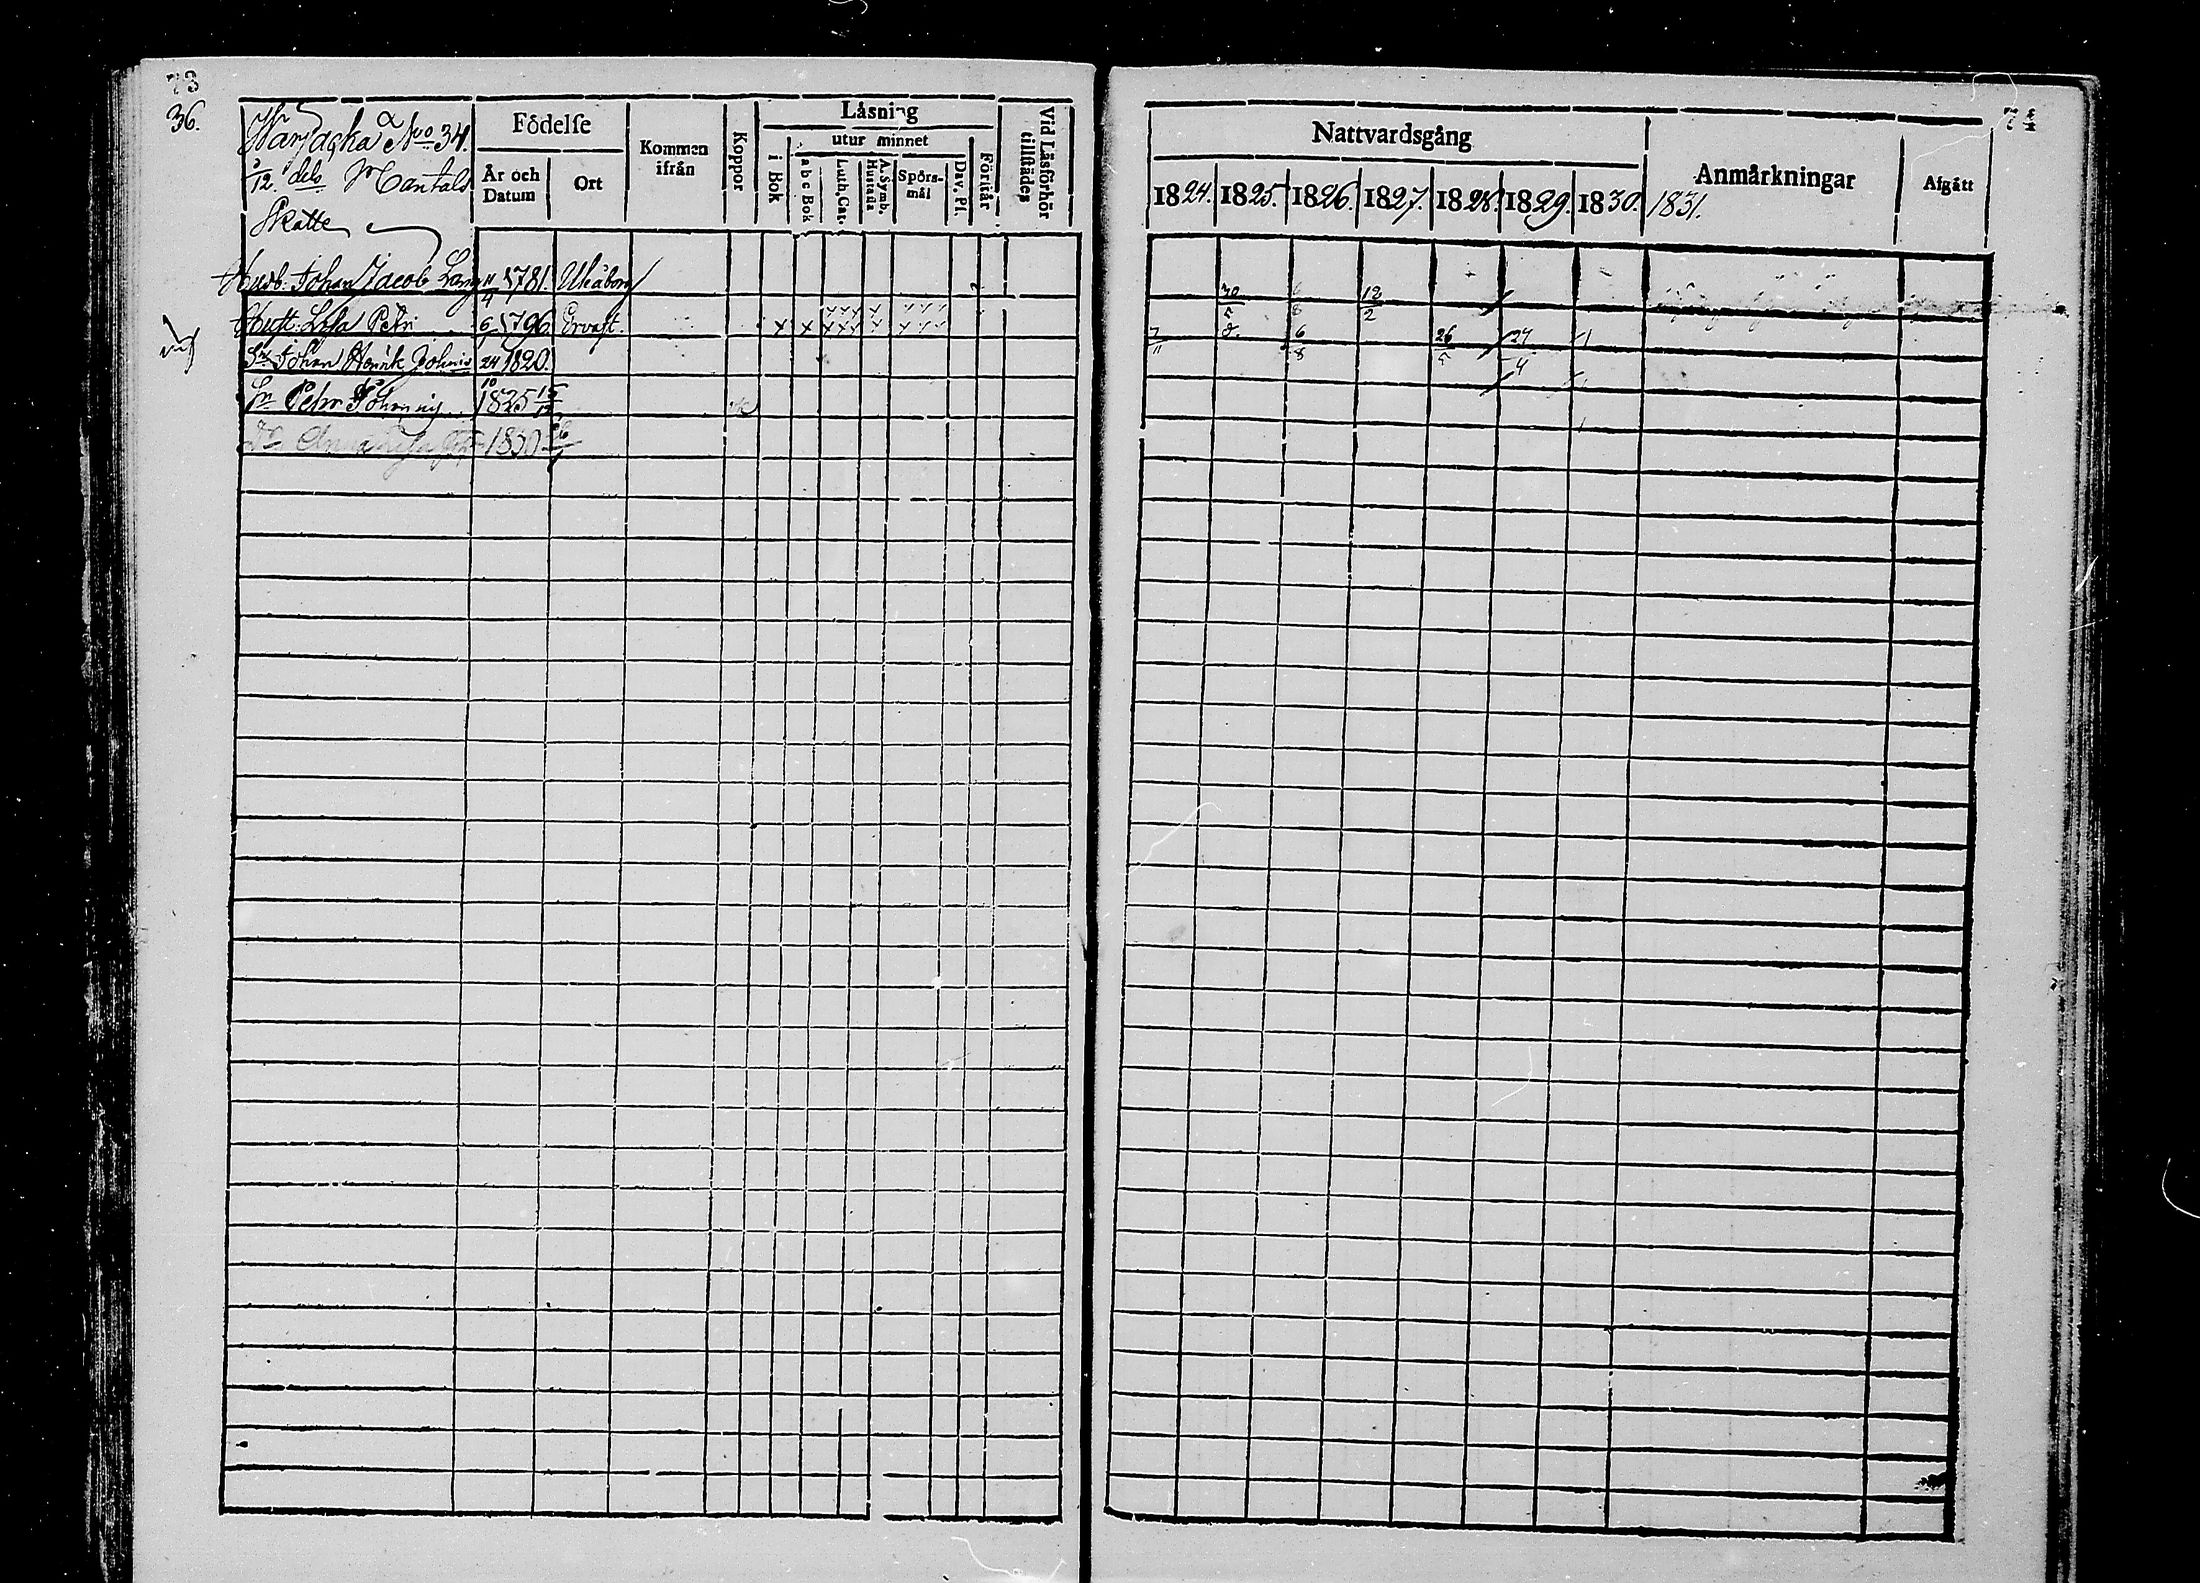 73
36.
No 34.
12. dels Mantals
Skatte
Födelse
År och Datum
Ort
Kommen ifrån
Koppor
Läsning
i Bok
utur minnet
a b c Bok
Luth. Cat.
A. Symb. Hustafla
Spörsmål
Dav. Ps.
Förstår
Vid Läsförhör tillstädes
Husb. Johan Jacob Lang 11/4 1781. Uleåborg
Hust. Lisa Petri 6 1796 Ervast.
Sn Johan Henrik Johnis 24/10 1820.
Sn Petr Johannis 1825
Dr Anna Lisa 1830
74
Nattvardsgång
1824. 1825. 1826. 1827. 1828. 1829. 1830. 1831.
Anmärkningar
Afgått
30/5 6/8 12/2
7/11 6/8 26/5 27/4